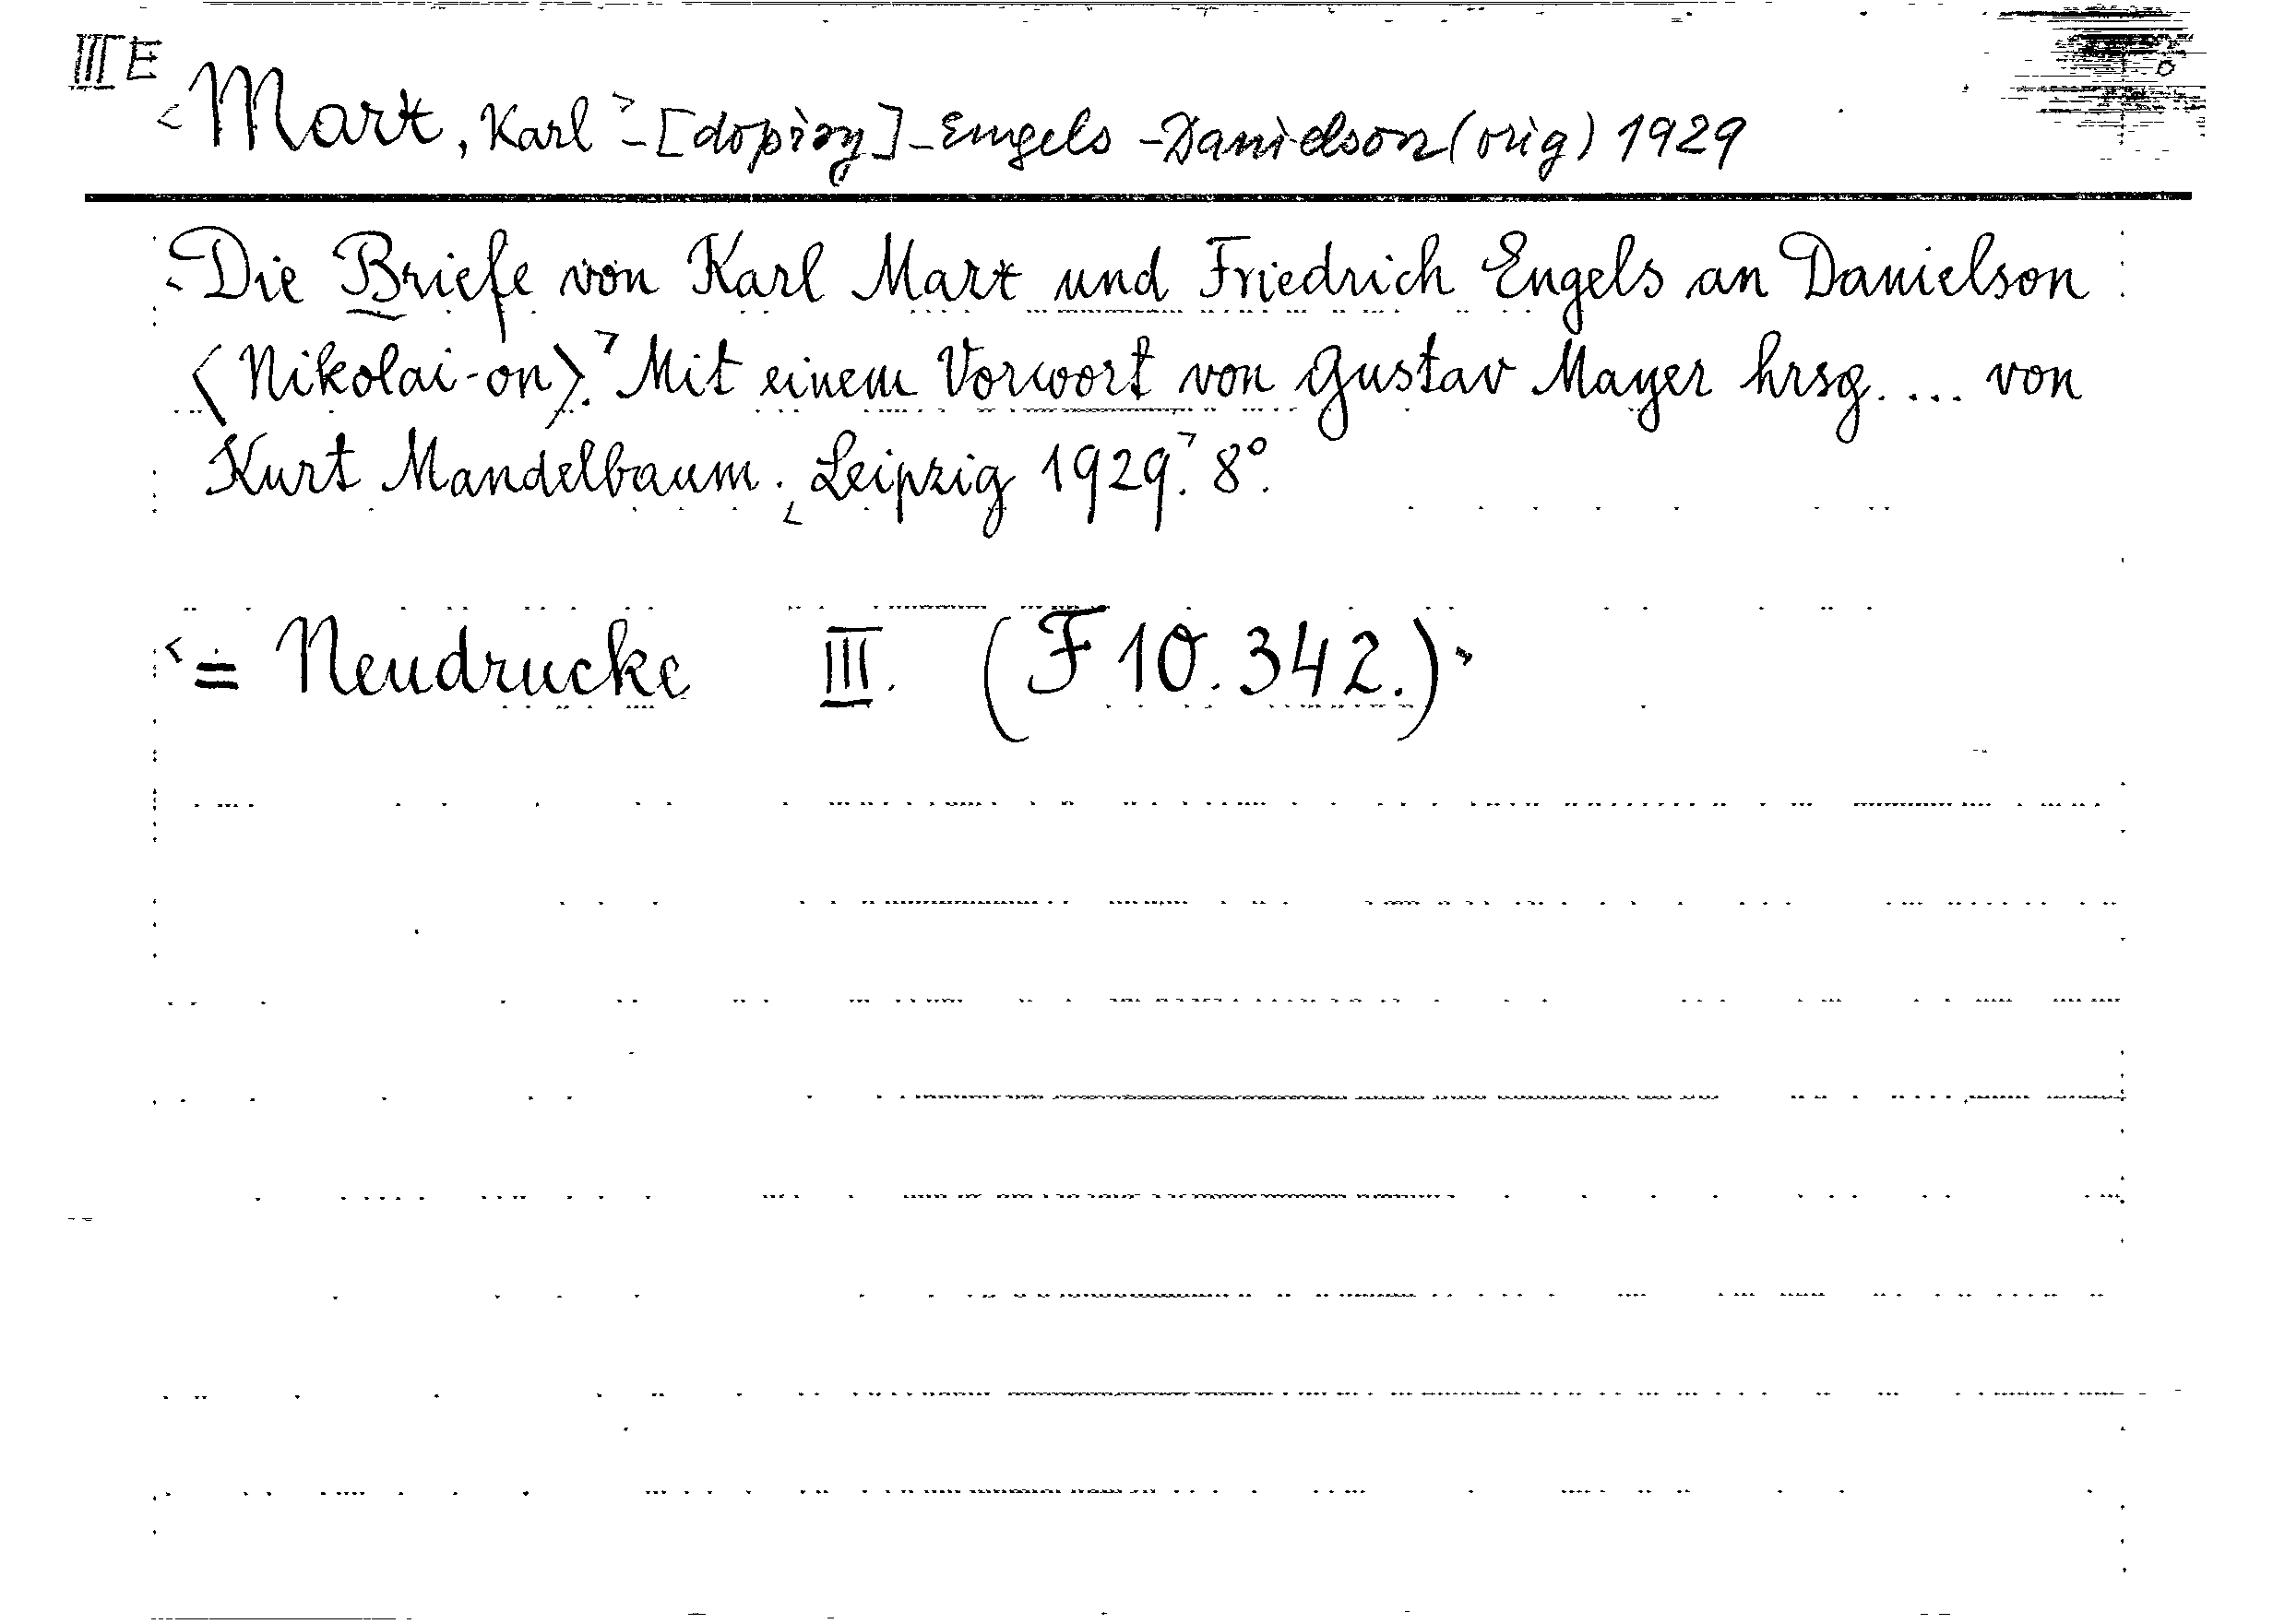 III E
<Marx, Karl> - [dopisy] - Engels - Danielson (orig) 1929
<Die Briefe von Karl Marx und Friedrich Engels an Danielson
<Nikolai-on>.> Mit einem Vorwort von Gustav Mayer hrsg. ... von
Kurt Mandelbaum. <Leipzig 1929.> 8°.
<= Neudrucke III. (F 10.342.)>